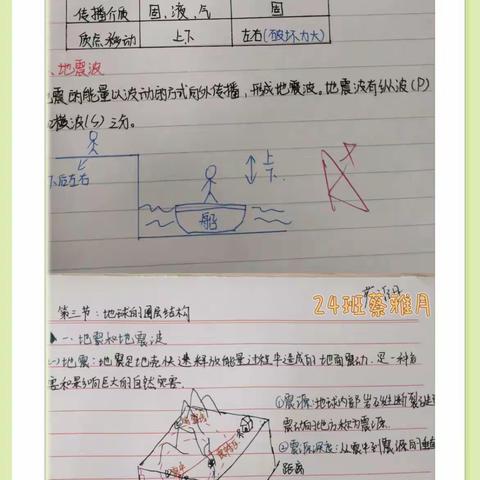 传播介质 固、液、气 固
质点移动 上下 左右(破坏力大)
、地震波
震的能量以波动的方式向外传播,形成地震波。地震波有纵波(P)
横波(S)之分。
上
下
后左右
船
24班蔡雅月
第三节:地球的圈层结构
一、地震和地震波
(一)地震:地震是地壳快速释放能量过程中造成的地面震动,是一种
影响巨大的自然灾害
①震源:地球内部岩石发生断裂
震动的地方称为震源
②震源深度:从震中到震源的垂直
距离